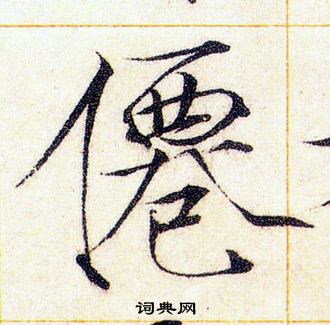 僊
词典网